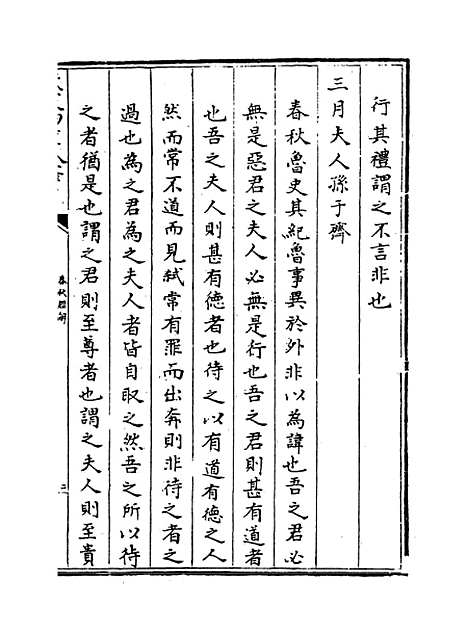 行其禮謂之不言非也
三月夫人孫于齊
春秋魯史其紀魯事異於外非以為諱也吾之君必
無是惡君之夫人必無是行也吾之君則甚有道者
也吾之夫人則甚有徳者也待之以有道有徳之人
然而常不道而見弑常有罪而出奔則非待之者之
過也為之君為之夫人者皆自取之然吾之所以待
之者猶是也謂之君則至尊者也謂之夫人則至貴
春秋經解
三